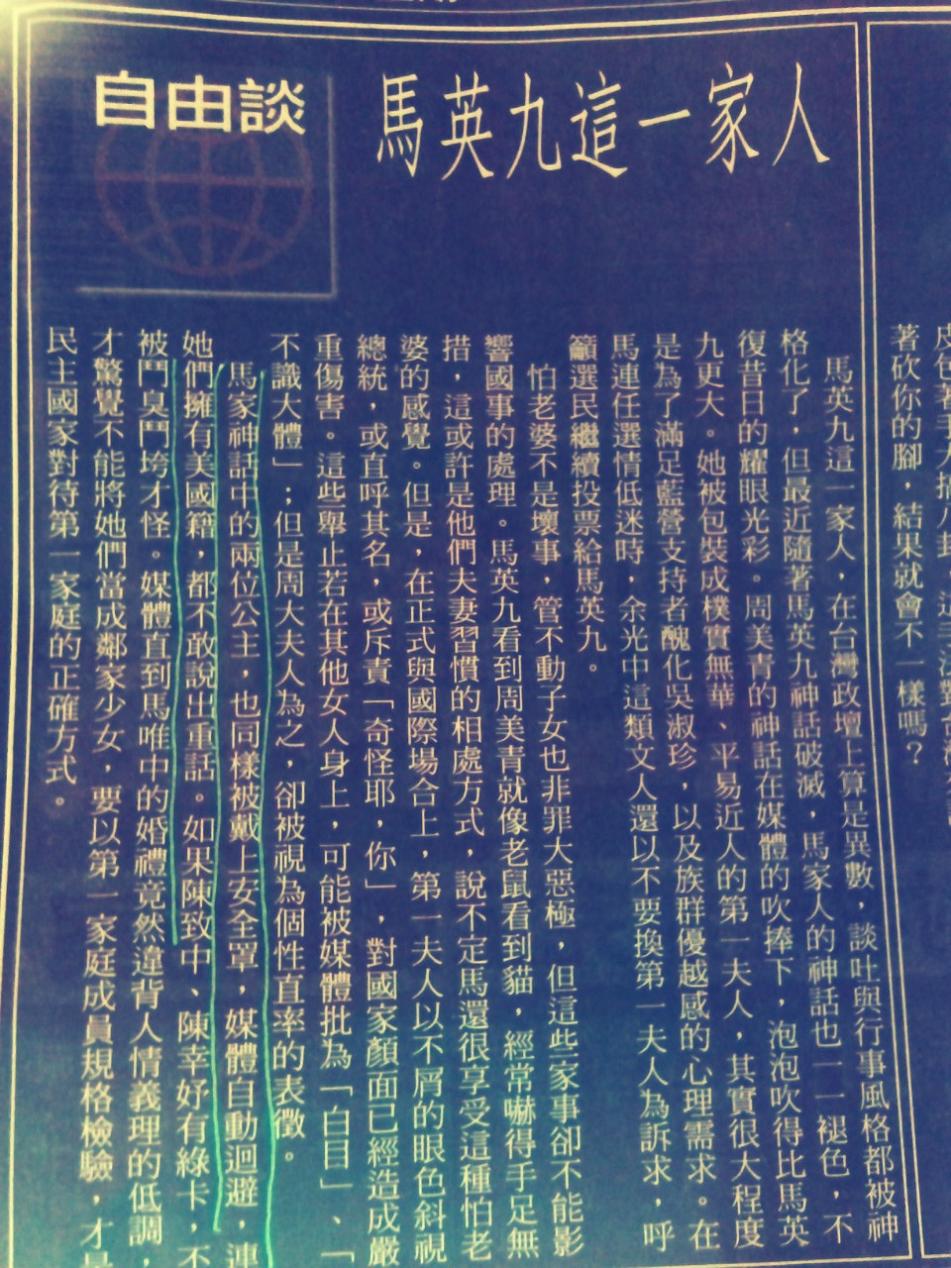 著砍你的腳，結果就會不一樣嗎？
自由談
馬英九這一家人
馬英九這一家人，在台灣政壇上算是異數，談吐與行事風格都被神
格化了，但最近隨著馬英九神話破滅，馬家人的神話也一一褪色，不
復昔日的耀眼光彩。周美青的神話在媒體的吹捧下，泡泡吹得比馬英
九更大。她被包裝成樸實無華、平易近人的第一夫人，其實很大程度
是為了滿足藍營支持者醜化吳淑珍，以及族群優越感的心理需求。在
馬連任選情低迷時，余光中這類文人還以不要換第一夫人為訴求，呼
籲選民繼續投票給馬英九。
怕老婆不是壞事，管不動子女也非罪大惡極，但這些家事卻不能影
響國事的處理。馬英九看到周美青就像老鼠看到貓，經常嚇得手足無
措，這或許是他們夫妻習慣的相處方式，說不定馬還很享受這種怕老
婆的感覺。但是，在正式與國際場合上，第一夫人以不屑的眼色斜視
總統，或直呼其名，或斥責「奇怪耶，你」，對國家顏面已經造成嚴
重傷害。這些舉止若在其他女人身上，可能被媒體批為「白目」、「
不識大體」；但是周大夫人為之，卻被視為個性直率的表徵。
馬家神話中的兩位公主，也同樣被戴上安全罩，媒體自動迴避，連
她們擁有美國籍，都不敢說出重話。如果陳致中、陳幸妤有綠卡，不
被鬥臭鬥垮才怪。媒體直到馬唯中的婚禮竟然違背人情義理的低調，
才驚覺不能將她們當成鄰家少女，要以第一家庭成員規格檢驗，才是
民主國家對待第一家庭的正確方式。